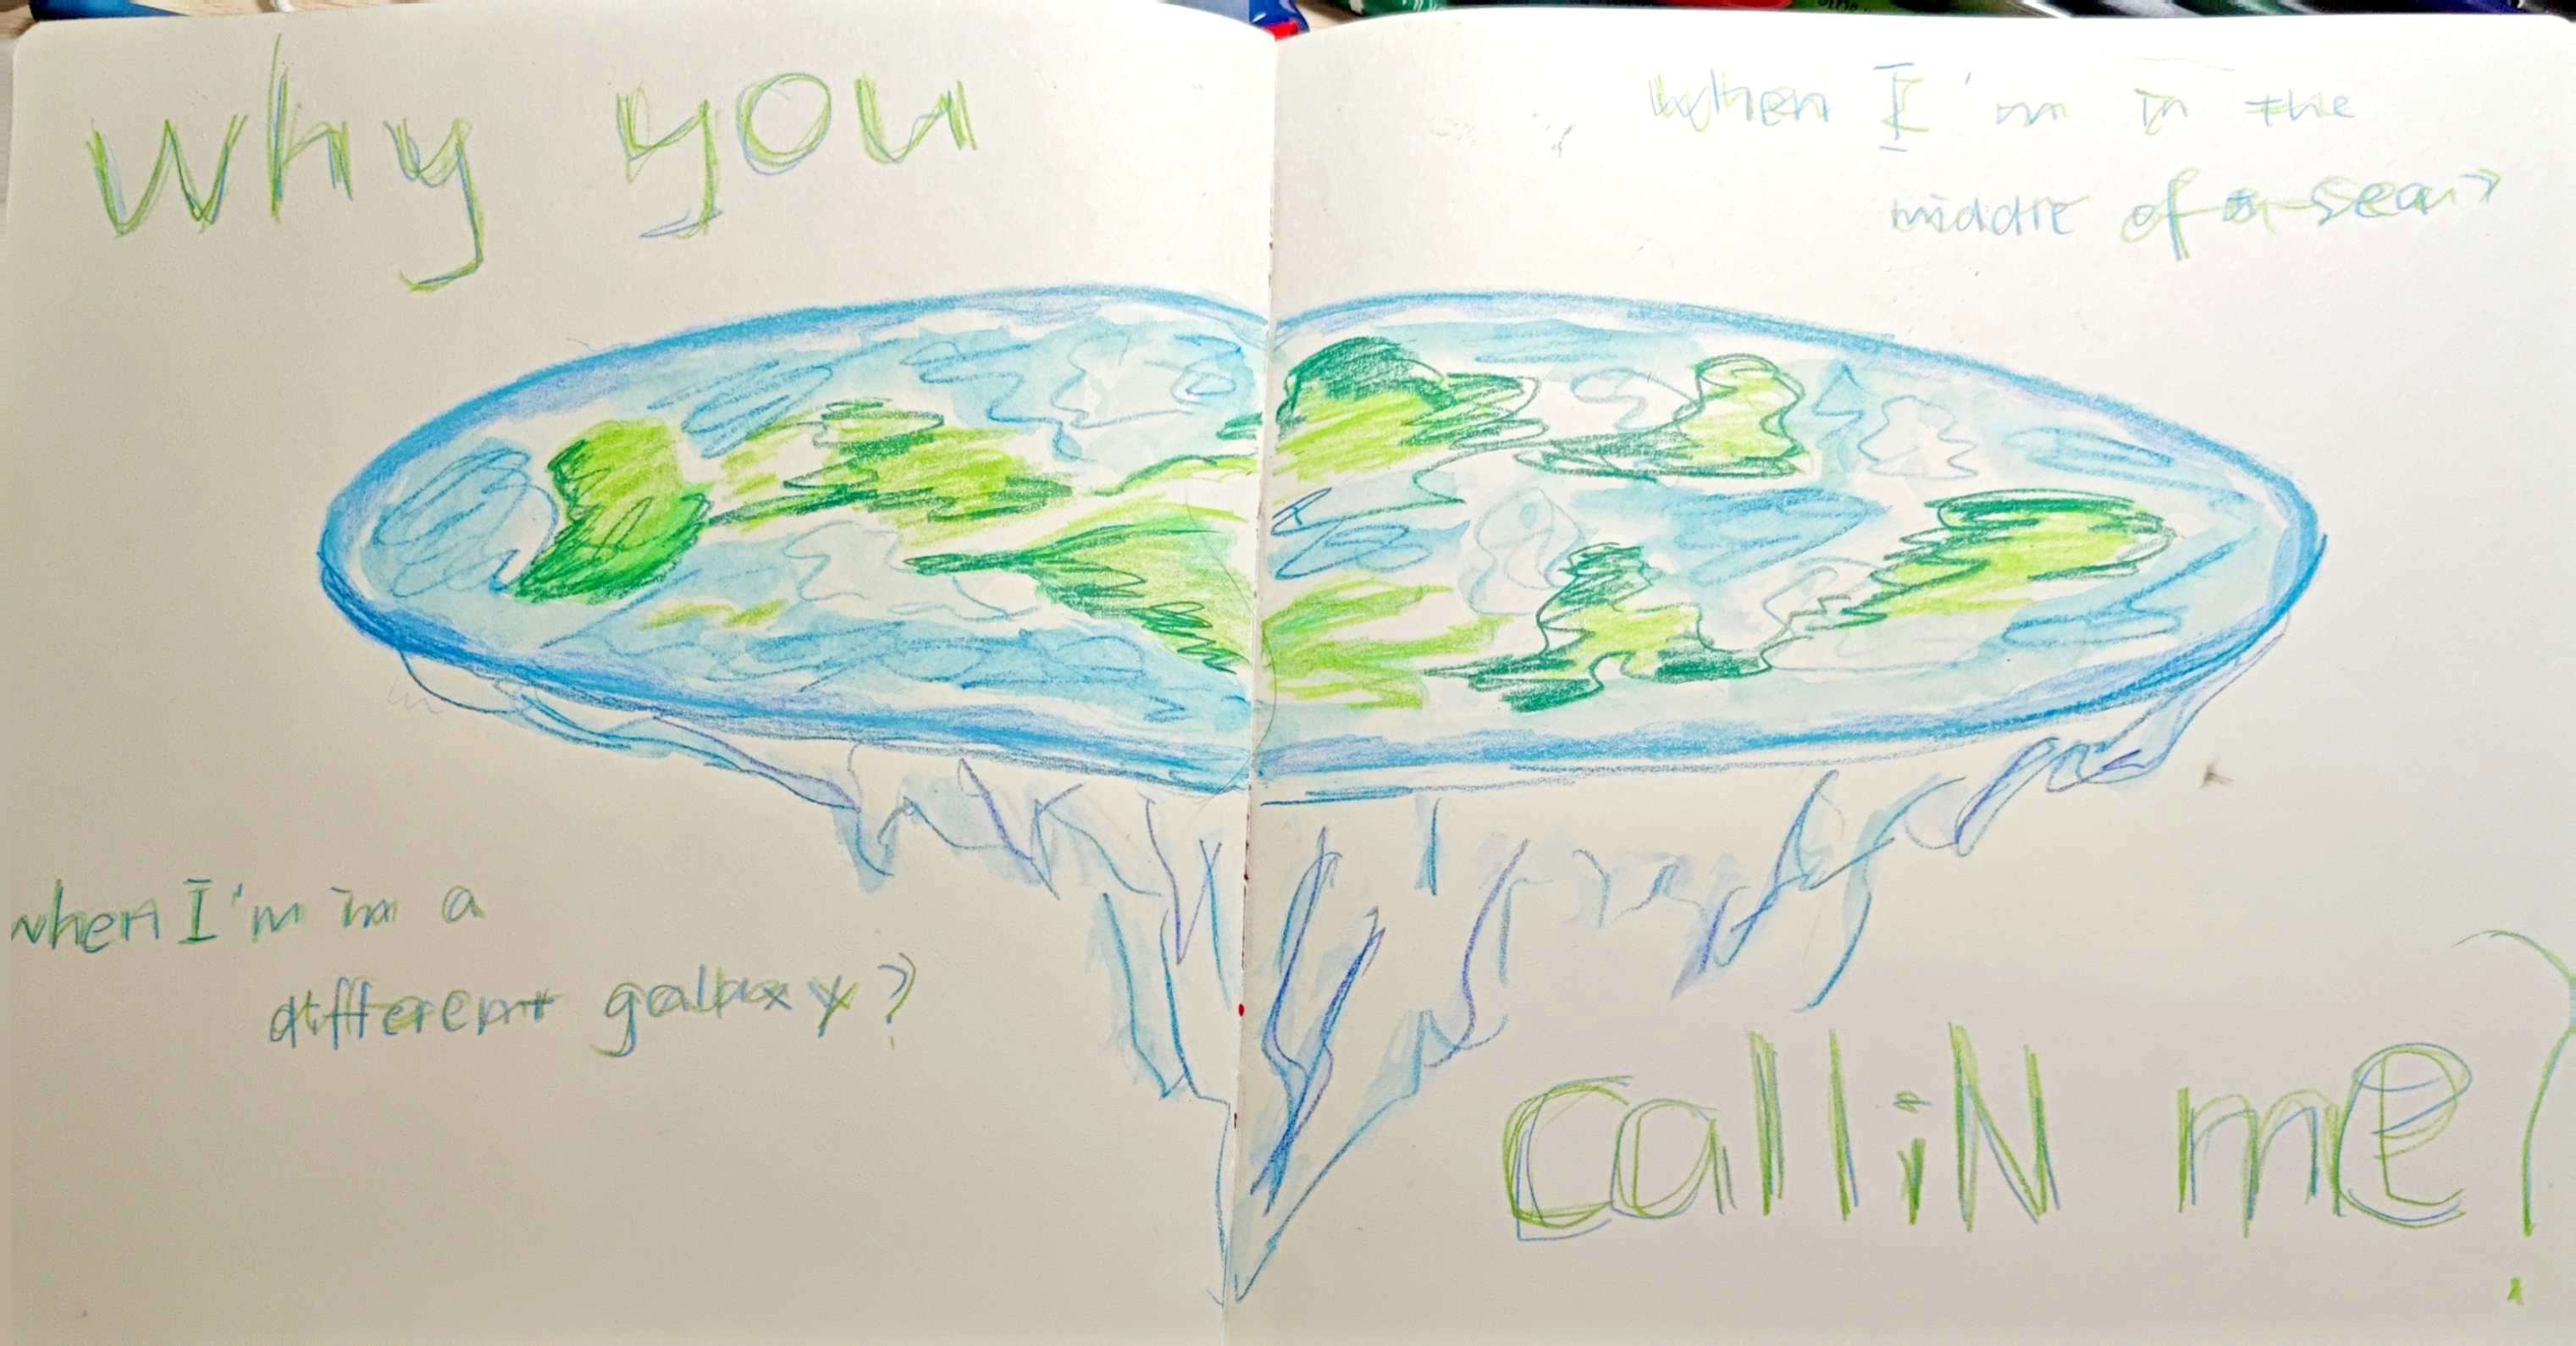 why you
when I'm in the
middle of a sea?
when I'm in a
different galaxy?
calliN me?